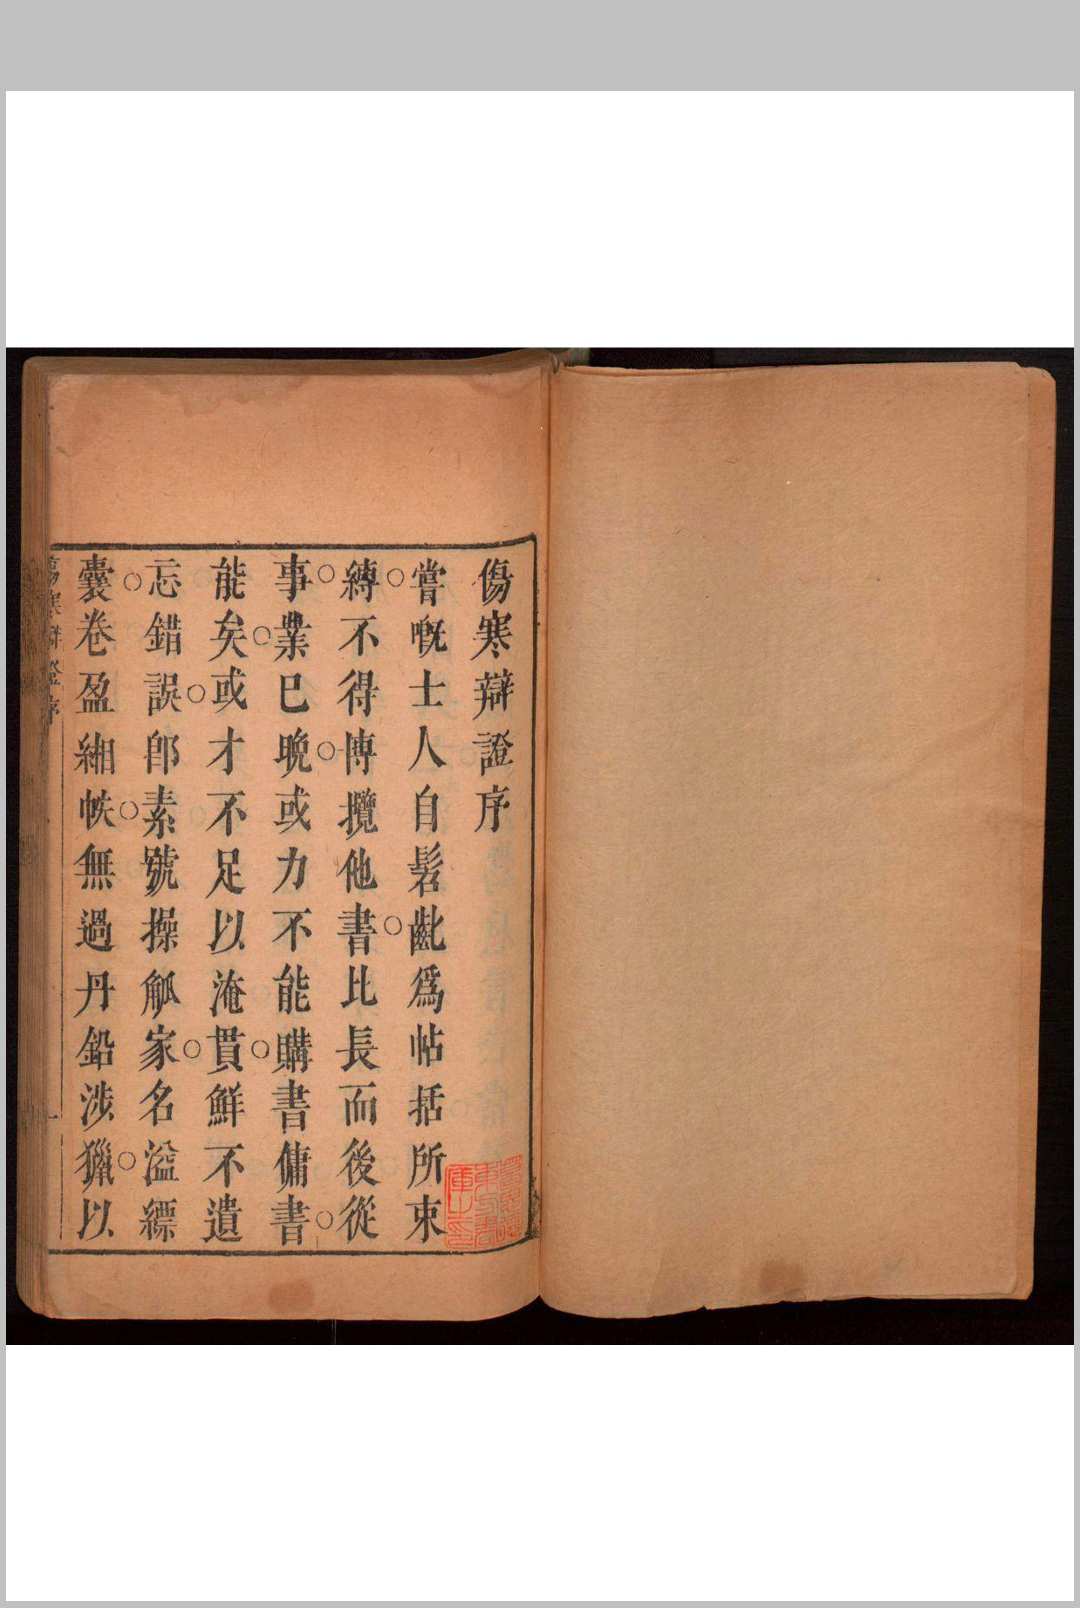 傷寒辯證序
嘗嘅士人自髫齔爲帖括所束
縛不得博攬他書比長而後從
事業已晚或力不能購書傭書
能矣或才不足以淹貫鮮不遺
忘錯誤卽素號操觚家名溢縹
囊卷盈緗帙無過丹鉛涉獵以
傷寒辯證序
一